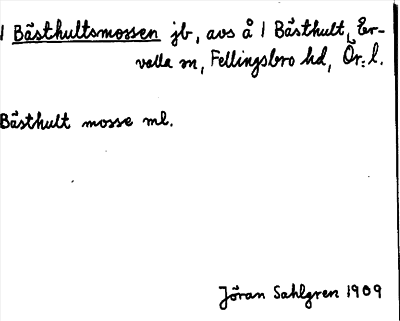 1 Bästhultsmossen jb, avs å 1 Bästhult, Er-
valla sn, Fellingsbro hd, Ör. l.
Bästhult mosse ml.
Jöran Sahlgren 1909